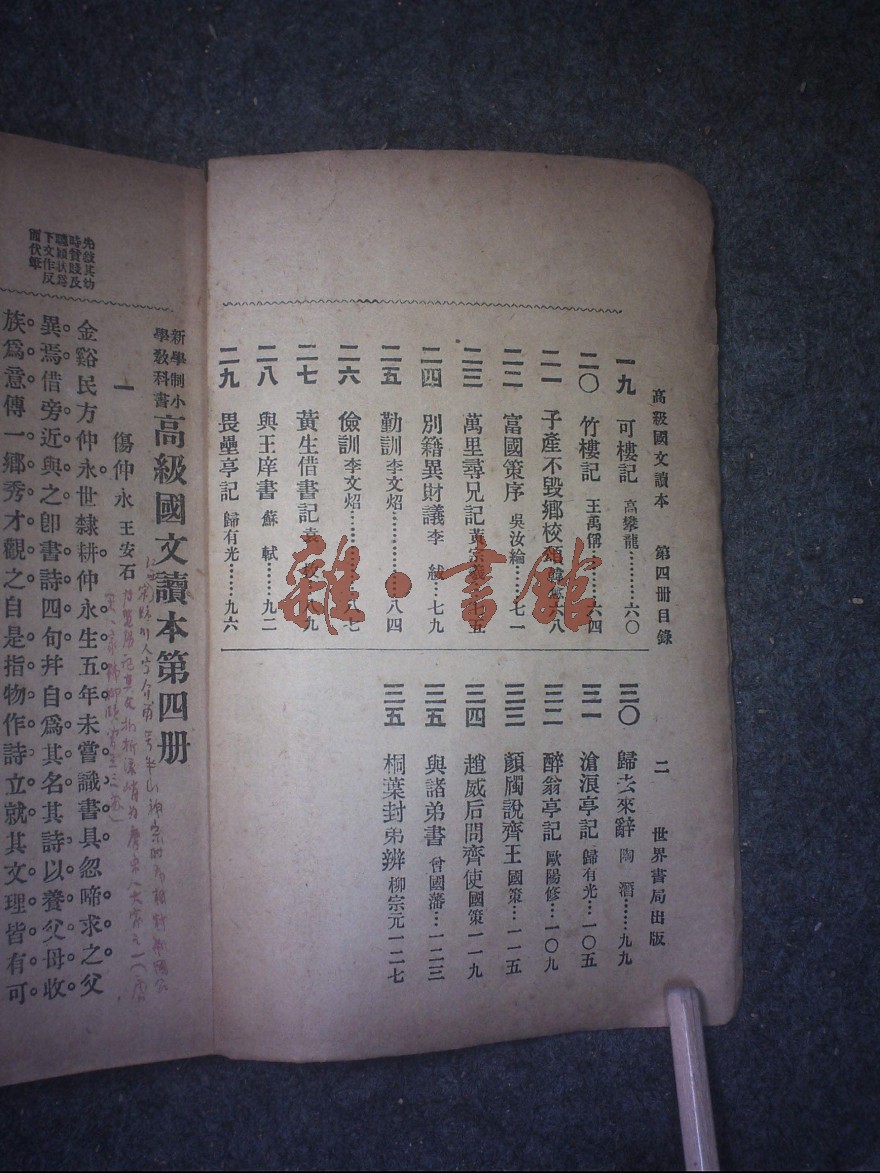 高級國文讀本　第四冊目錄　二　世界書局出版
一九　可樓記　高攀龍…………六〇
二〇　竹樓記　王萬偁…………六四
二一　子產不毀鄉校頌　韓愈六八
二二　富國策序　吳汝綸……七一
二三　萬里尋兄記　黃宗羲七五
二四　別籍異財議　李　紱…七九
二五　勤訓　李文炤……………八四
二六　儉訓　李文炤……………八七
二七　黃生借書記　袁　枚八九
二八　與王庠書　蘇　軾…九二
二九　畏壘亭記　歸有光……九六
三〇　歸去來辭　陶　潛……九九
三一　滄浪亭記　歸有光…一〇五
三二　醉翁亭記　歐陽修…一〇九
三三　顏斶說齊王　國策…一一五
三四　趙威后問齊使　國策一一九
三五　與諸弟書　曾國藩…一二三
三五　桐葉封弟辨　柳宗元一二七
雜·書館
新學制小學教科書　高級國文讀本第四冊
一　傷仲永　王安石
金谿民方仲永。世隸耕。仲永生五年。未嘗識書具。忽啼求之。父
異焉。借旁近與之。卽書詩四句。幷自爲其名。其詩以養父母收
族爲意。傳一鄉秀才觀之。自是指物作詩立就。其文理皆有可